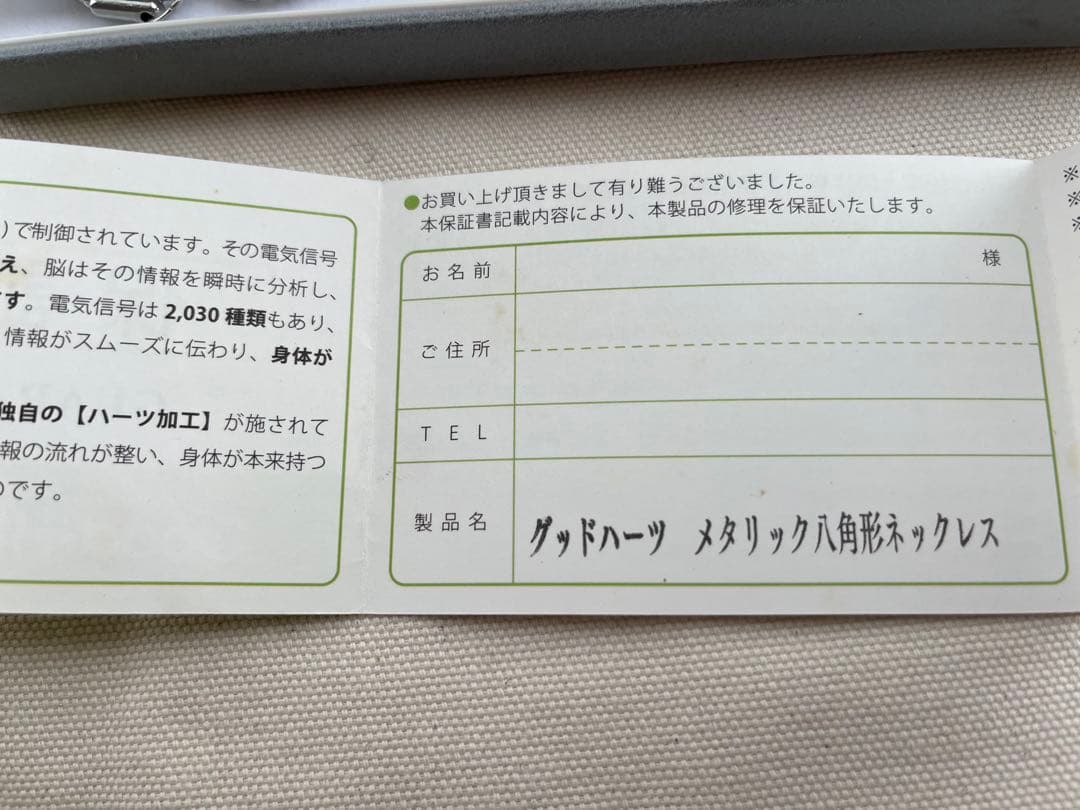 )で制御されています。その電気信号
え、脳はその情報を瞬時に分析し、
す。電気信号は 2,030 種類もあり、
情報がスムーズに伝わり、身体が
独自の【ハーツ加工】が施されて
報の流れが整い、身体が本来持つ
のです。
●お買い上げ頂きまして有り難うございました。
本保証書記載内容により、本製品の修理を保証いたします。
お名前 様
ご住所
TEL
製品名 グッドハーツ メタリック八角形ネックレス
※
※
※